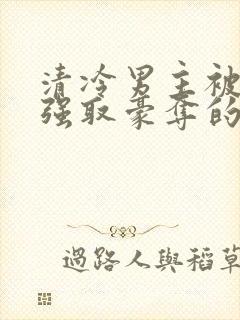 清冷男主被
强取豪夺的
過路人與稻草